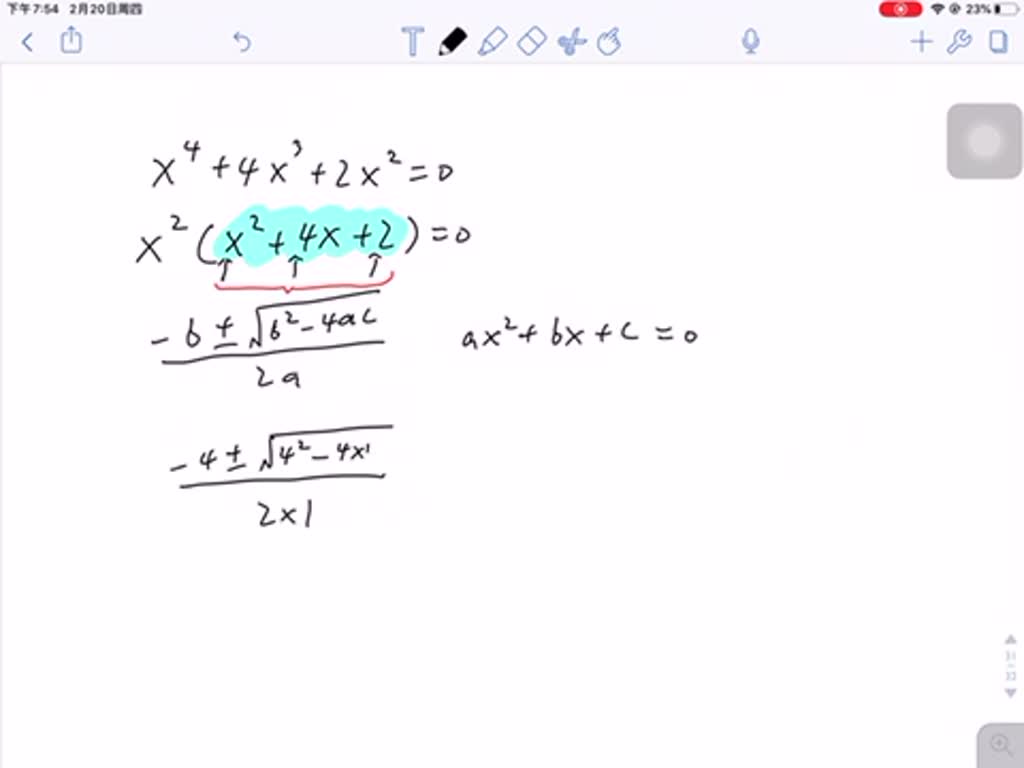 下午7:54 2月20日周四 23%
T
x⁴ + 4x³ + 2x² = 0
x² (x² + 4x + 2) = 0
↑ ↑ ↑
-b ± √b² - 4ac
ax² + bx + c = 0
2a
-4 ± √4² - 4×1
2×1